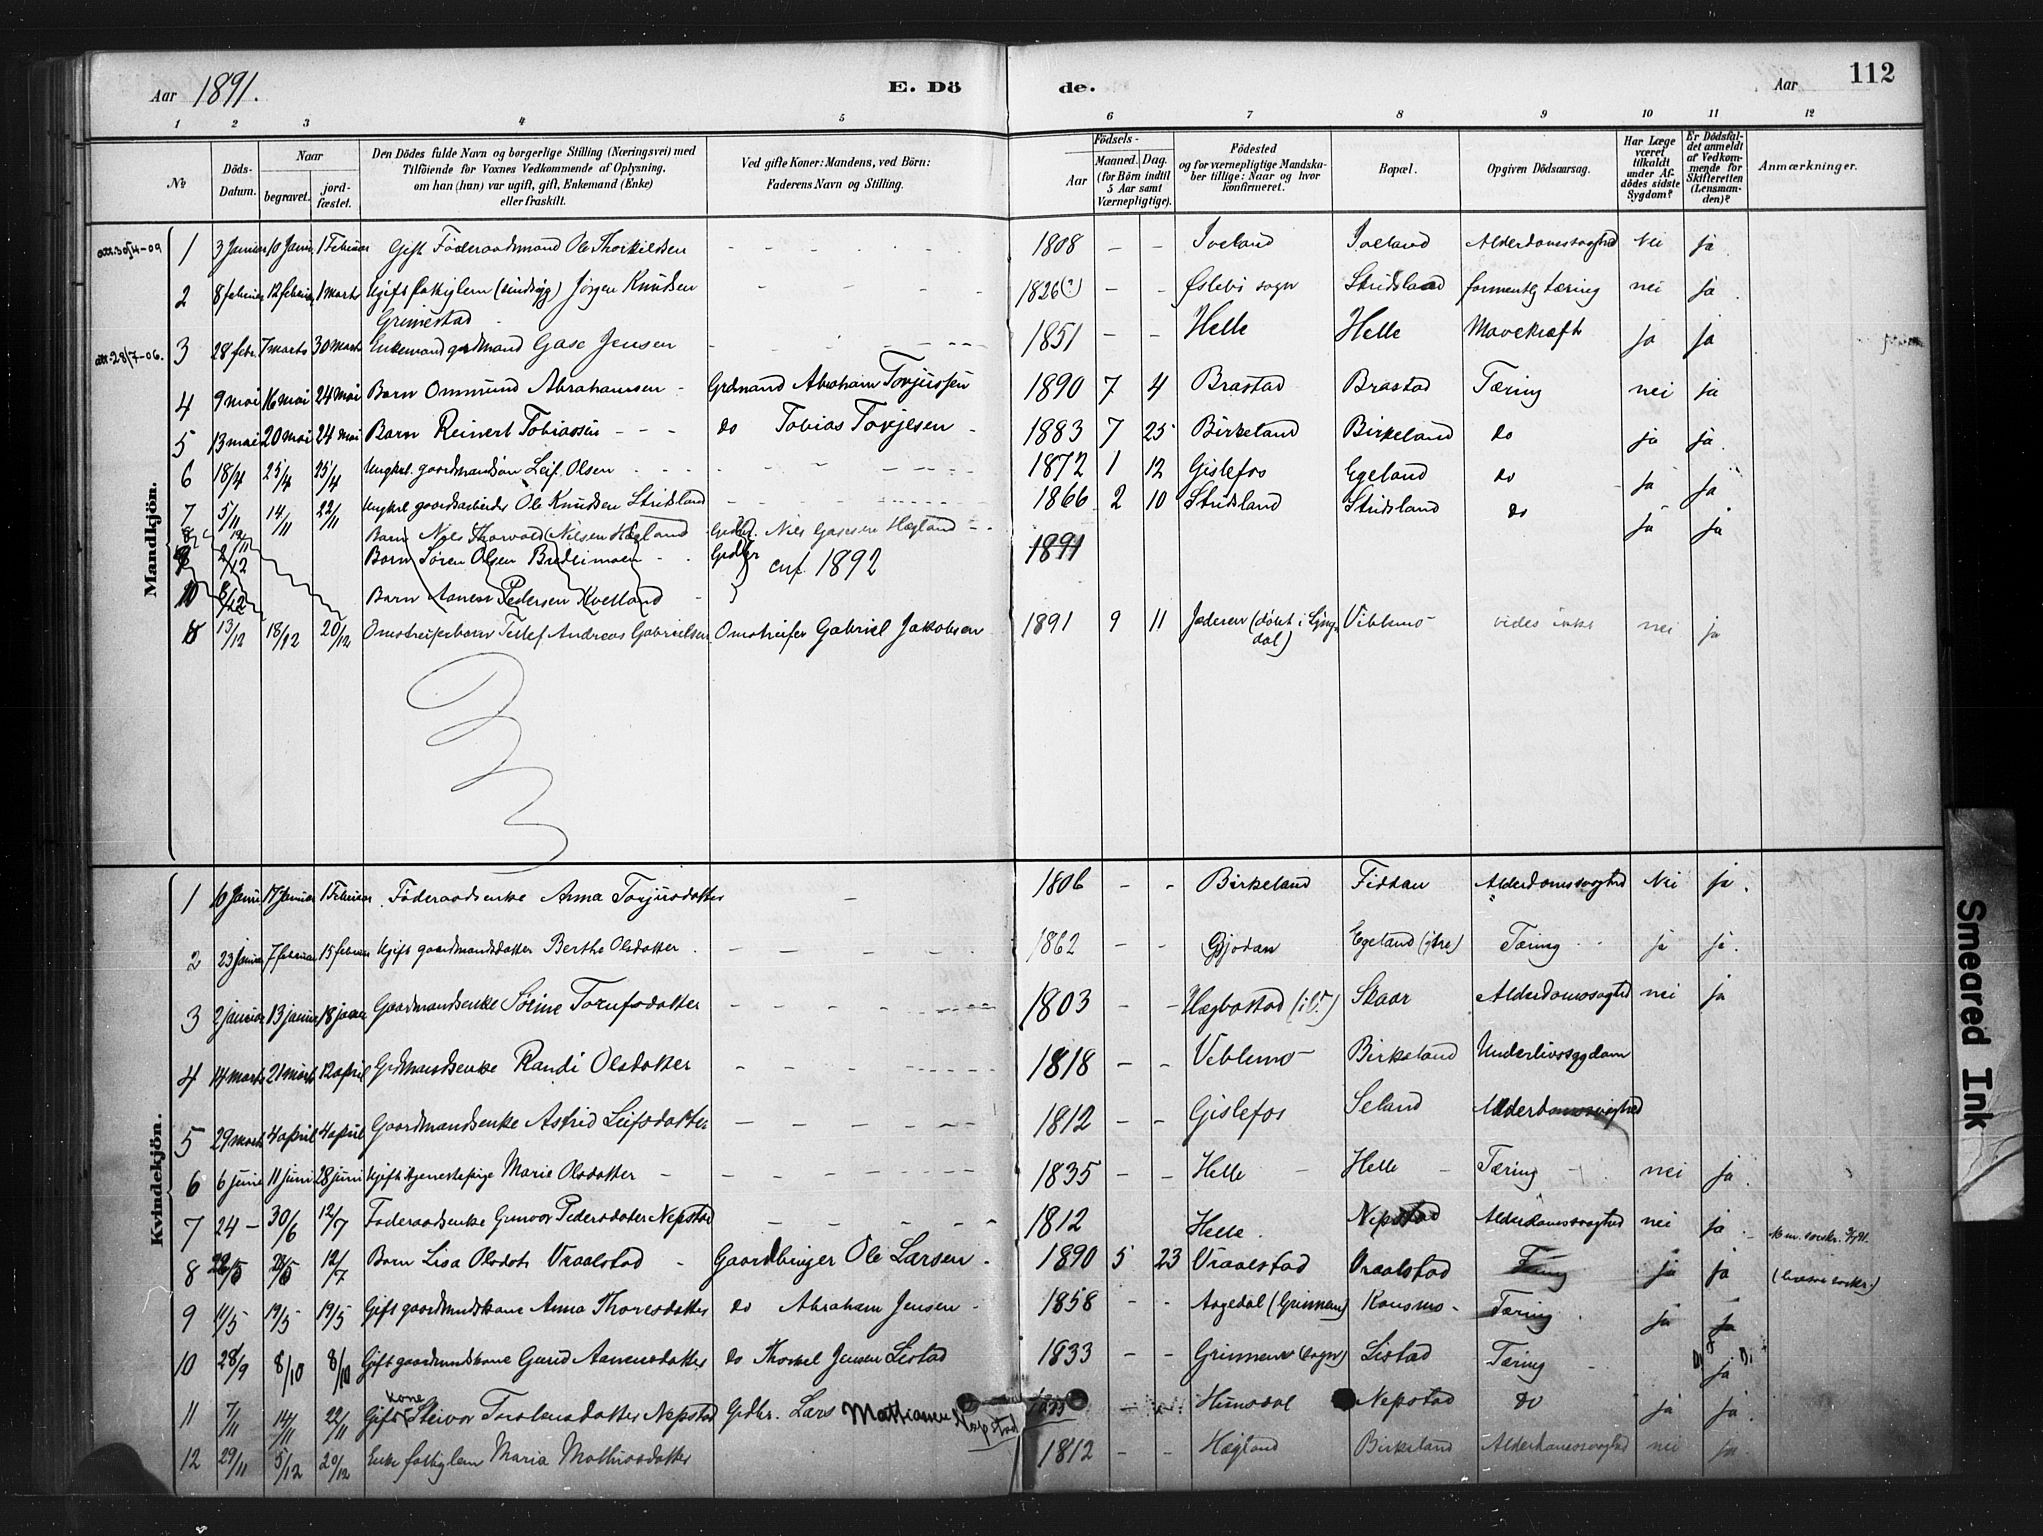 Aar 1891. E. Dö de. Aar 112
1 2 3 4 5 6 7 8 9 10 11 12
№ Döds-Datum. Naar begravet. jord-fæstet. Den Dödes fulde Navn og borgerlige Stilling (Næringsvei) med Tilföiende for Voxnes Vedkommende af Oplysning, om han (hun) var ugift, gift, Enkemand (Enke) eller fraskilt. Ved gifte Koner: Mandens, ved Börn: Faderens Navn og Stilling. Födsels- Aar Maaned. Dag. (for Börn indtil 5 Aar samt Værnepligtige). Födested og for værnepligtige Mandskaber tillige: Naar og hvor konfirmeret. Bopæl. Opgiven Dödsaarsag. Har Læge været tilkaldt under Afdödes sidste Sygdom? Er Dödsfaldet anmeldt af Vedkommende for Skifteretten (Lensmanden)? Anmærkninger.
Mandkjön.
att. 30/4-09 1 3 Januar 10 Januar 1 Februar Gift Föderaadsmand Ole Thorkildsen 1808 - - Iveland Iveland Alderdomssvaghed Nei ja.
2 8 februar 12 februar 1 marts Ugift fattiglem (sindssyg) Jörgen Knudsen 1826(?) - - Öslebö sogn Stridsland formentlig tæring nei ja.
Grimestad
att. 28/7-06. 3 28 febr. 7 marts 30 marts Enkemand gardmand Gase Jensen 1851 - - Helle Helle Mavekræft ja ja
4 9 mai 16 mai 24 mai Barn Ommund Abrahamsen Grdmand Abraham Torjussen 1890 7 4 Brastad Brastad Tæring nei ja
5 13 mai 20 mai 24 mai Barn Reinert Tobiassen do Tobias Torjesen 1883 7 25 Birkeland Birkeland do ja ja.
6 18/4 25/4 25/4 Ungkl. gaardmandsön Leif Olsen 1872 1 12 Gislefos Egeland do ja ja
7 5/11 14/11 22/11 Ungkl gaardsarbeider Ole Knudsen Stridsland 1866 2 10 Stridsland Stridsland do ja ja
8 Barn Nils Thorvald Nilsen Hægland Nils Gasesen Hægland 1891
9 2/12 Barn Sören Olsen Bredlimoen cnf. 1892
10 8/12 Barn Aanen Pedersen Kvelland
8 13/12 18/12 20/12 Omstreiferbarn Tellef Andreas Gabrielsen Omstreifer Gabriel Jakobsen 1891 9 11 Jæderen (döbt i Lyngdal) Viblemo vides ikke nei ja
Kvindekjön.
1 6 Januar 17 Januar 1 Februar Föderaadsenke Anna Torjusdatter 1806 - - Birkeland Fiddan Alderdomssvaghed Nei ja.
2 23 Januar 7 februar 15 februar Ugift gaardmandsdatter Berthe Olsdatter 1862 - - Gjodan Egeland (ytre) Tæring ja ja.
3 2 januar 13 januar 18 januar Gaardmandsenke Sörine 1803 - - Hægbostad Skaar Alderdomssvaghed nei ja
4 14 marts 21 marts 12 april Grdmandsenke Randi Olsdatter 1818 - - Viblemo Birkeland Underlivssygdom
5 29 marts 4 april 4 april Gaardmandsenke Astrid Leifsdatter 1812 - - Gislefos Seland Alderdomssvaghed
6 6 juni 11 juni 28 juni Ugift tjenestepige Marie Olsdatter 1835 - - Helle Helle Tæring nei ja.
7 24 - 30/6 12/7 Föderaadsenke Gunvor Pedersdatter Nepstad 1812 Helle. Nepstad Alderdomssvaghed nei ja
8 12/7 Barn Lisa Olsdatr Vraalstad Gaardbruger Ole Larsen 1890 5 23 Vraalstad Vraalstad Tæring ja ja
9 11/5 19/5 19/5 Gift gaardmandskone Anna Thoresdatter do Abraham Jensen 1858 - - Aagedal (Grinnem) Konsmo Tæring ja ja
10 28/9 8/10 8/10 Gift gaardmandskone Gurid Aanensdatter do Thorkel Jensen Listad 1833 - - Grinnem (sogn) Listad Tæring ja
11 7/11 14/11 22/11 Gift kone Steivor Nepstad Grdbr. Lars Mathiasen Nepstad Hunsdal Nepstad do ja ja.
12 29/11 5/12 20/12 Enke fattiglem Maria Mathisdatter 1812 - - Hægland Birkeland Alderdomssvaghed nei ja.
Smeared Ink